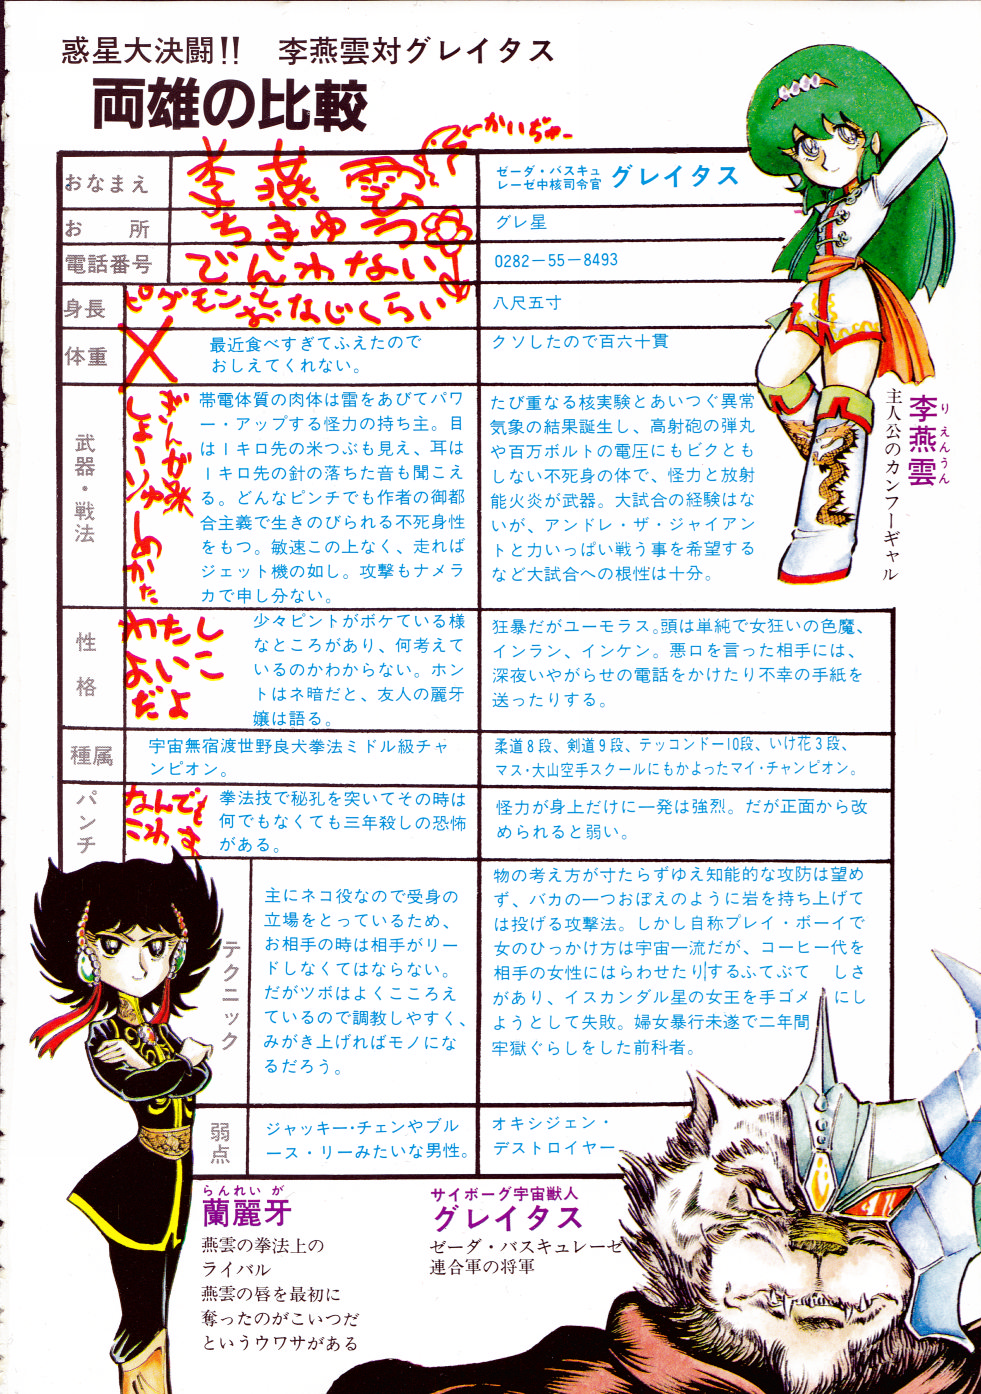 惑星大決闘!!　李燕雲対グレイタス
両雄の比較
←かいぢゅー
おなまえ
李燕雲
ゼーダ・バスキュ
レーゼ中核司令官 グレイタス
お　所
ちきゅう
グレ星
電話番号
でんわない
0282－55－8493
身長
ピグモンとおなじくらい
八尺五寸
体重
最近食べすぎてふえたので
おしえてくれない。
クソしたので百六十貫
武器・戦法
ぎんが
しょーりゅー
しめかた
帯電体質の肉体は雷をあびてパワ
ー・アップする怪力の持ち主。目
は1キロ先の米つぶも見え、耳は
1キロ先の針の落ちた音も聞こえ
る。どんなピンチでも作者の御都
合主義で生きのびられる不死身性
をもつ。敏速この上なく、走れば
ジェット機の如し。攻撃もナメラ
カで申し分ない。
たび重なる核実験とあいつぐ異常
気象の結果誕生し、高射砲の弾丸
や百万ボルトの電圧にもビクとも
しない不死身の体で、怪力と放射
能火炎が武器。大試合の経験はな
いが、アンドレ・ザ・ジャイアン
トと力いっぱい戦う事を希望する
など大試合への根性は十分。
性格
わたし
よいこ
だよ
少々ピントがボケている様
なところがあり、何考えて
いるのかわからない。ホン
トはネ暗だと、友人の麗牙
嬢は語る。
狂暴だがユーモラス。頭は単純で女狂いの色魔、
インラン、インケン。悪口を言った相手には、
深夜いやがらせの電話をかけたり不幸の手紙を
送ったりする。
種属
宇宙無宿渡世野良犬拳法ミドル級チャ
ンピオン。
柔道8段、剣道9段、テッコンドー10段、いけ花3段、
マス・大山空手スクールにもかよったマイ・チャンピオン。
パンチ
なんでも
こわ
拳法技で秘孔を突いてその時は
何でもなくても三年殺しの恐怖
がある。
怪力が身上だけに一発は強烈。だが正面から改
められると弱い。
テクニック
主にネコ役なので受身の
立場をとっているため、
お相手の時は相手がリー
ドしなくてはならない。
だがツボはよくこころえ
ているので調教しやすく、
みがき上げればモノにな
るだろう。
物の考え方が寸たらずゆえ知能的な攻防は望め
ず、バカの一つおぼえのように岩を持ち上げて
は投げる攻撃法。しかし自称プレイ・ボーイで
女のひっかけ方は宇宙一流だが、コーヒー代を
相手の女性にはらわせたりするふてぶて　しさ
があり、イスカンダル星の女王を手ゴメ　にし
ようとして失敗。婦女暴行未遂で二年間
牢獄ぐらしをした前科者。
弱点
ジャッキー・チェンやブル
ース・リーみたいな男性。
オキシジェン・
デストロイヤー
李燕雲
りえんうん
主人公のカンフーギャル
らんれいが
蘭麗牙
燕雲の拳法上の
ライバル
燕雲の唇を最初に
奪ったのがこいつだ
というウワサがある
サイボーグ宇宙獣人
グレイタス
ゼーダ・バスキュレーゼ
連合軍の将軍